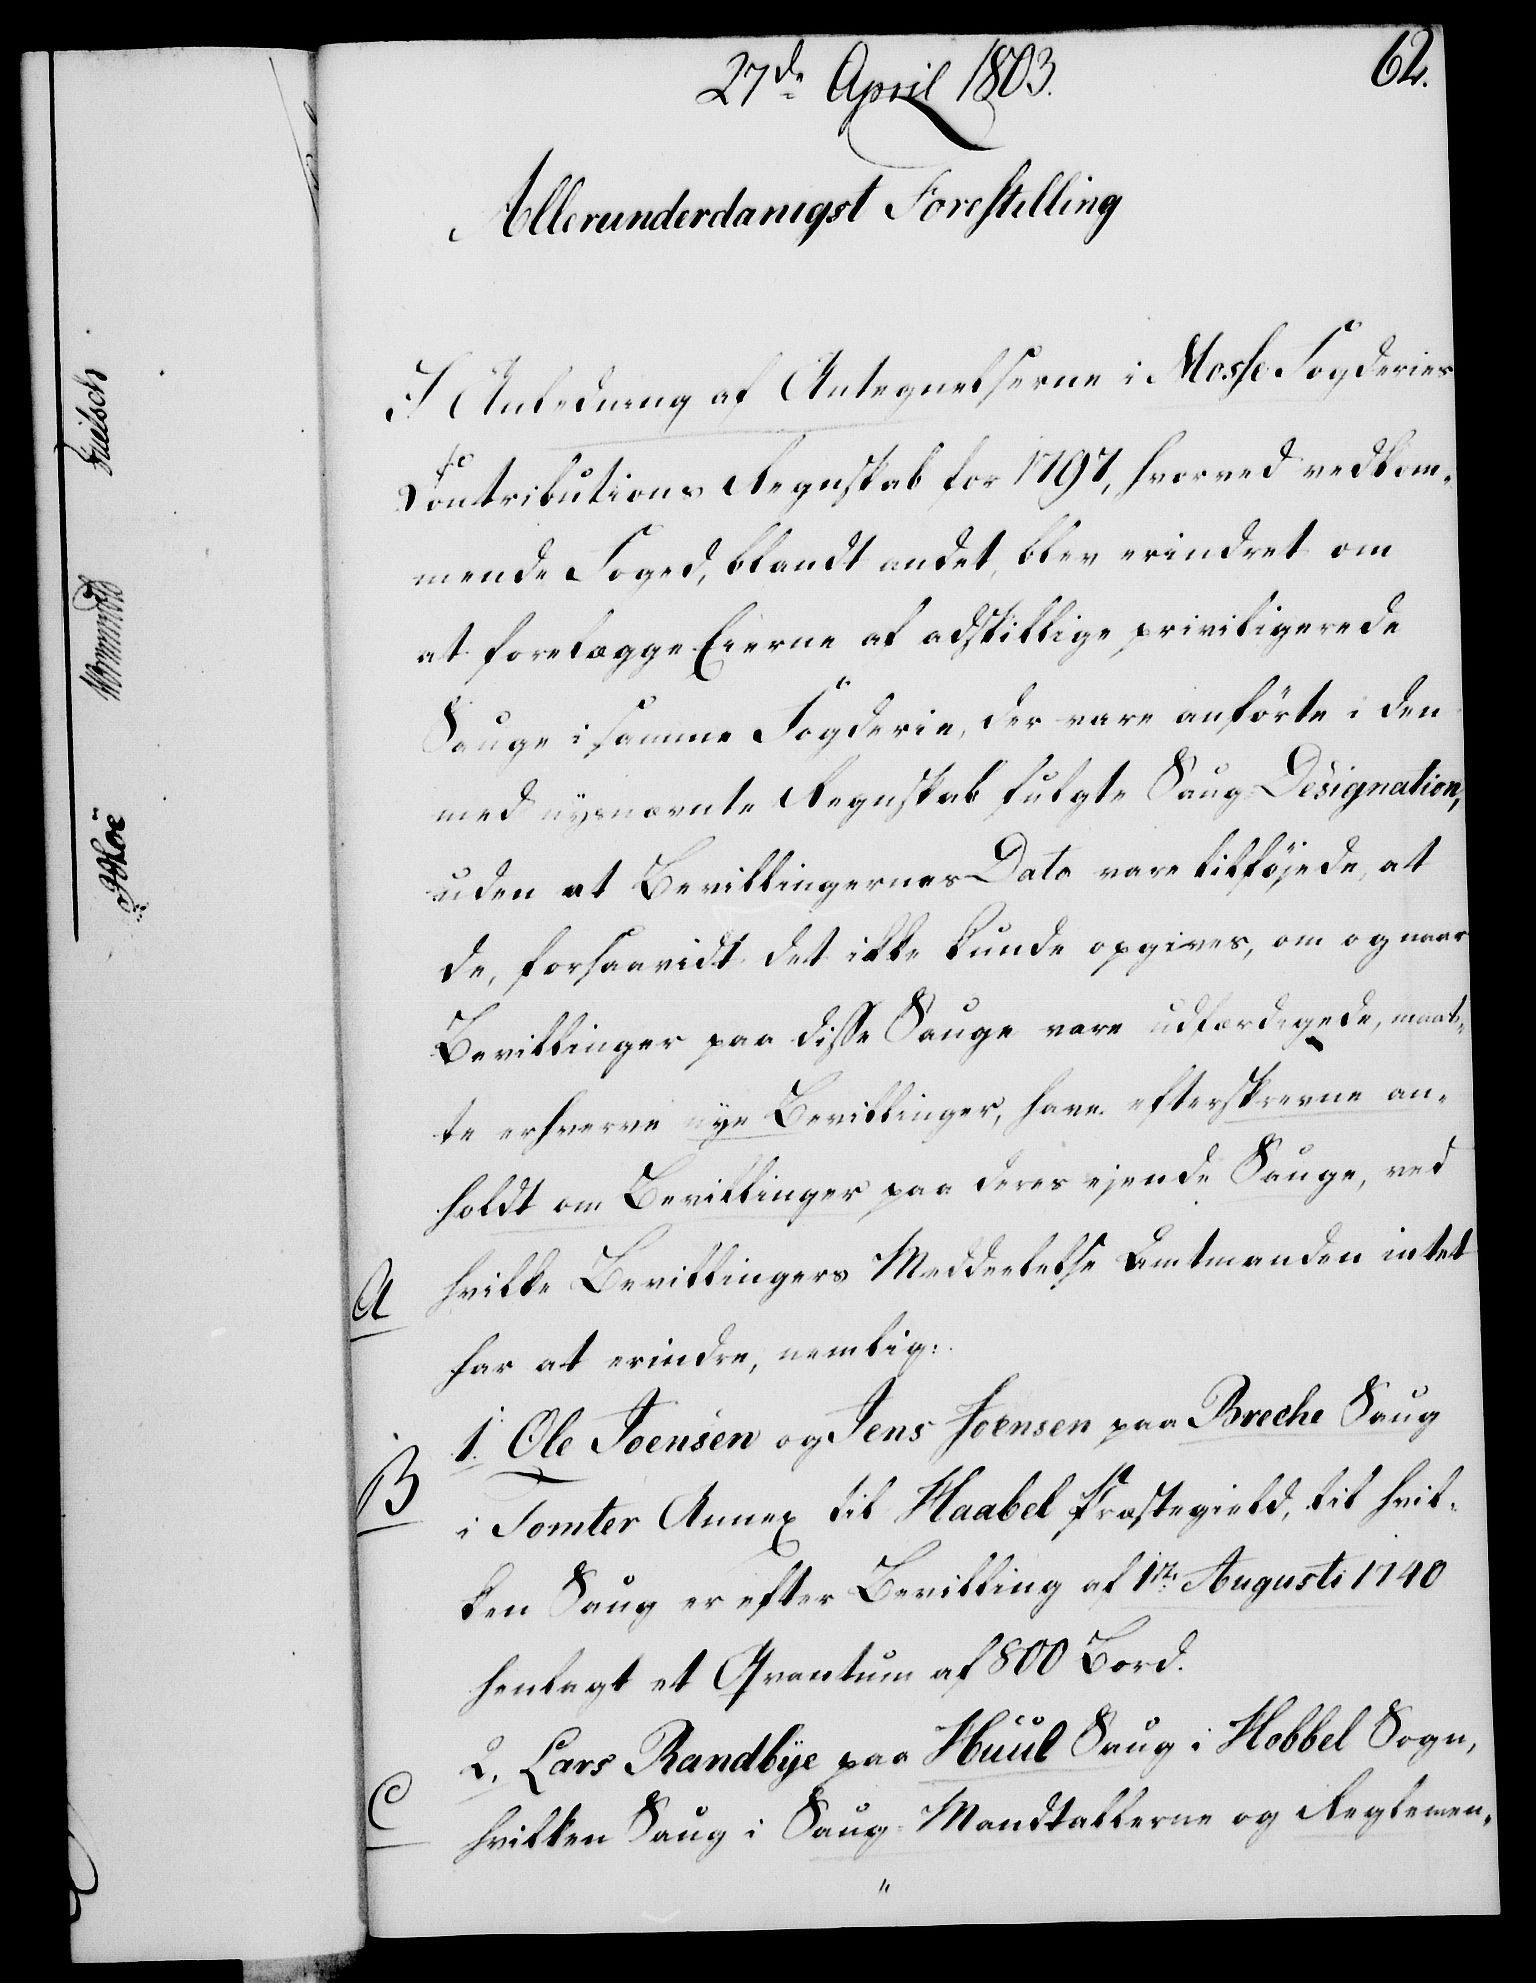 27de April 1803.
62.
Allerunderdanigst Forestilling
I Anledning af Antegnelserne i Mosse Fogderies
Contributions Regnskab for 1797, hvorved vedkom-
mende Foged, blandt andet, blev erindret om
at forelægge Eierne af adskillige priviligerede
Sauge i samme Fogderie, der vare anførte i den
med nysnævnte Regnskab fulgte Saug-Designation,
uden at Bevillingernes Data vare tilføjede, at
de, forsaavidt det ikke kunde opgives, om og naar
Bevillinger paa disse Sauge vare udfærdigede, maat-
te erhverve nye Bevillinger, have efterskrevne an-
holdt om Bevillinger paa deres ejende Sauge, ved
A
hvilke Bevillingers Meddeelelse Amtmanden intet
har at erindre, nemlig:
1. Ole Joensen og Jens Joensen paa Breche Saug
B
i Tomter Annex til Haabel Præstegield, til hvil-
ken Saug er efter Bevilling af 1ste Augusti 1740
henlagt et Qvantum af 800 Bord.
2. Lars Randbÿe paa Huul Saug i Hobbel Sogn,
C
hvilken Saug i Saug-Mandtallerne og Reglemen-
"